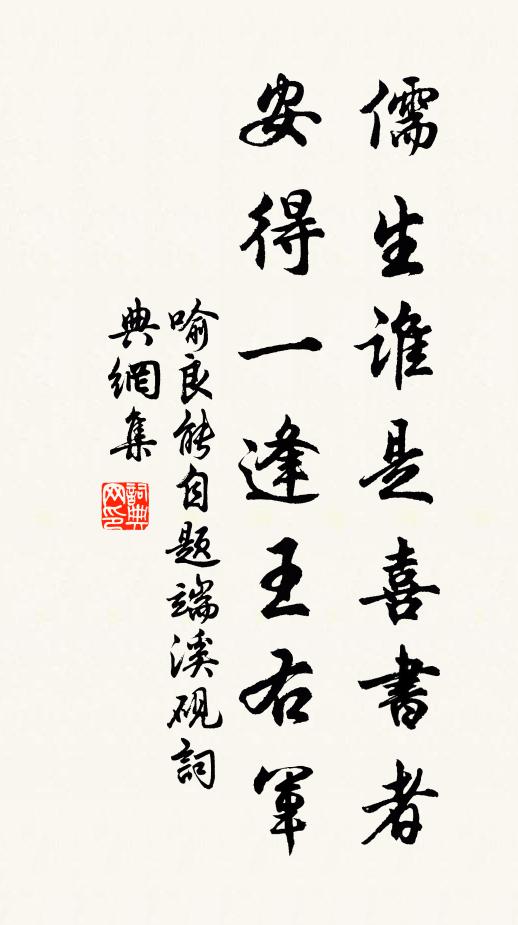 儒生誰是喜書者
安得一逢王右軍
喻良能自題端溪硯詞
典網集
詞典網印